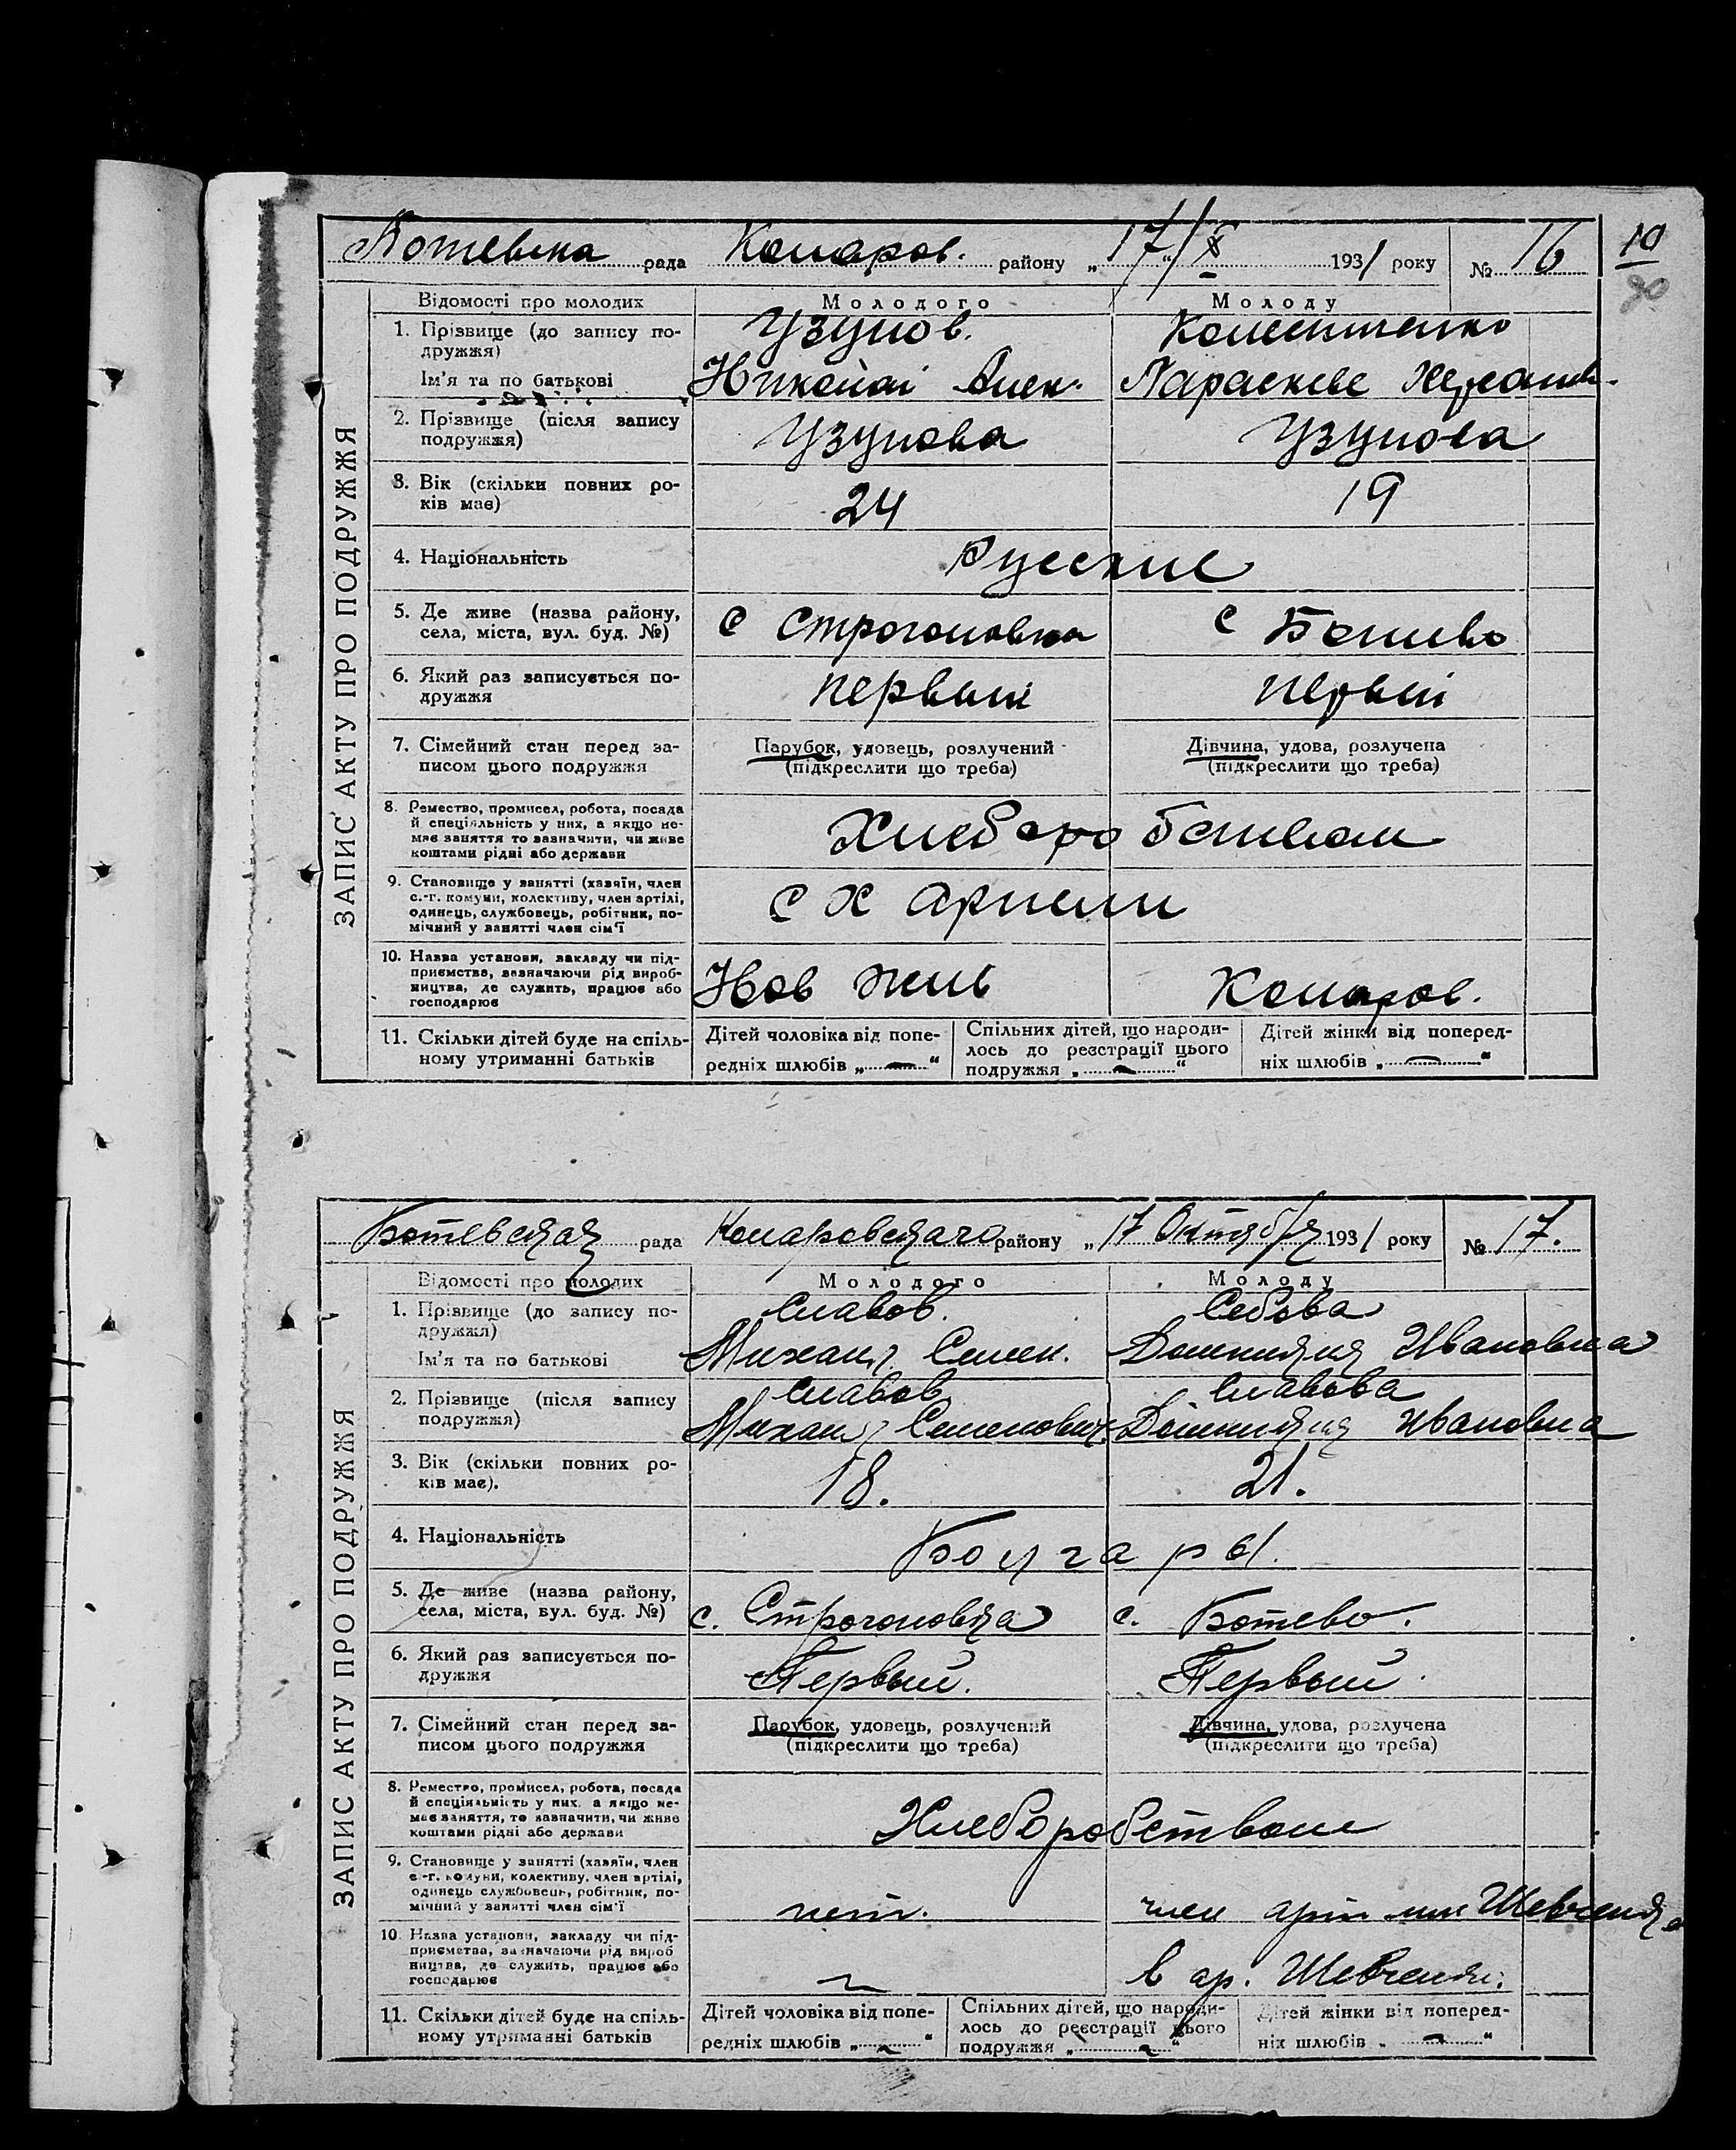 10
Ботевска рада Комаров. району „17/X“ 1931 року № 16
20
ЗАПИС АКТУ ПРО ПОДРУЖЖЯ
Відомості про молодих Молодого Молоду
1. Прізвище (до запису по-
дружжя)
Узунов.
Ім'я та по батькові
Николай Алек.
2. Прізвище (після запису
подружжя)
Узунова Узунова
3. Вік (скільки повних ро-
ків має)
24 19
4. Національність
Русские
5. Де живе (назва району,
села, міста, вул. буд. №)
с Строгоновка с Ботево
6. Який раз записується по-
дружжя
первый первый
7. Сімейний стан перед за-
писом цього подружжя
Парубок, удовець, розлучений
(підкреслити що треба)
Дівчина, удова, розлучена
(підкреслити що треба)
8. Ремество, промисел, робота, посада
й спеціяльність у них, а якщо не-
має заняття то зазначити, чи живе
коштами рідні або держави
Хлеборобством
9. Становище у занятті (хазяїн, член
с.-г. комуни, колективу, член артілі,
одинець, службовець, робітник, по-
мічний у занятті член сім'ї
с х артели
10. Назва установи, закладу чи під-
приємства, зазначаючи рід вироб-
ництва, де служить, працює або
господарює
Нов жив Комаров.
11. Скільки дітей буде на спіль-
ному утриманні батьків
Дітей чоловіка від попе-
редніх шлюбів „ — “
Спільних дітей, що народи-
лось до реєстрації цього
подружжя „ — “
Дітей жінки від поперед-
ніх шлюбів „ — “
Ботевская рада Комаровскаго району „17 Октября 1931 року № 17.
ЗАПИС АКТУ ПРО ПОДРУЖЖЯ
Відомості про молодих Молодого Молоду
1. Прізвище (до запису по-
дружжя)
Славов. Себова
Ім'я та по батькові
Михаил Семен. Домникия Ивановна
2. Прізвище (після запису
подружжя)
Славов Славова
Михаил Семенович. Домникия Ивановна
3. Вік (скільки повних ро-
ків має).
18. 21.
4. Національність
Болгары.
5. Де живе (назва району,
села, міста, вул. буд. №)
с. Строгоновка с. Ботево.
6. Який раз записується по-
дружжя
Первый. Первый.
7. Сімейний стан перед за-
писом цього подружжя
Парубок, удовець, розлучений
(підкреслити що треба)
Дівчина, удова, розлучена
(підкреслити що треба)
8. Ремество, промисел, робота, посада
й спеціяльність у них, а якщо не-
має заняття, то зазначити, чи живе
коштами рідні або держави
Хлеборобством
9. Становище у занятті (хазяїн, член
с.-г. комуни, колективу, член артілі,
одинець службовець, робітник, по-
мічний у занятті член сім'ї
нет. член арт им Шевченка
10 Назва установи, закладу чи під-
приємства, зазначаючи рід вироб
ництва, де служить, працює або
господарює
в ар. Шевченк.
11. Скільки дітей буде на спіль-
ному утриманні батьків
Дітей чоловіка від попе-
редніх шлюбів „ “
Спільних дітей, що народи-
лось до реєстрації цього
подружжя „ “
Дітей жінки від поперед-
ніх шлюбів „ “